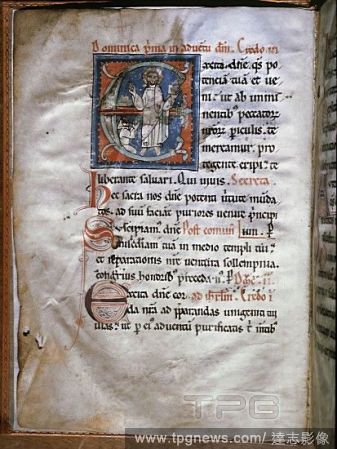 Dominica pma in adventu dni. Credo in
xcita dne qs po
tenciā tuā et ve
ni. ut ab immi
nentib' peccatoꝝ
nroꝝ piculis. te
mereamur. pro
tegente eripi. te
liberante salvari. Qui vivis. Secreta.
Hec sacra nos dne potenti virtute munda
tos. ad suū faciāt puriores venire principi
Suscipiam. dne Post comun̄
misediam tuā in medio templi tui. ut
reparationis nre ventura sollempnia.
congruis honorib' preceda
Excita dne cor. Credo i
da nra ad pparandas unigeniti
vias. ut p ei' adventū purificatis
TPG
www.tpgnews.com/ 達志影像